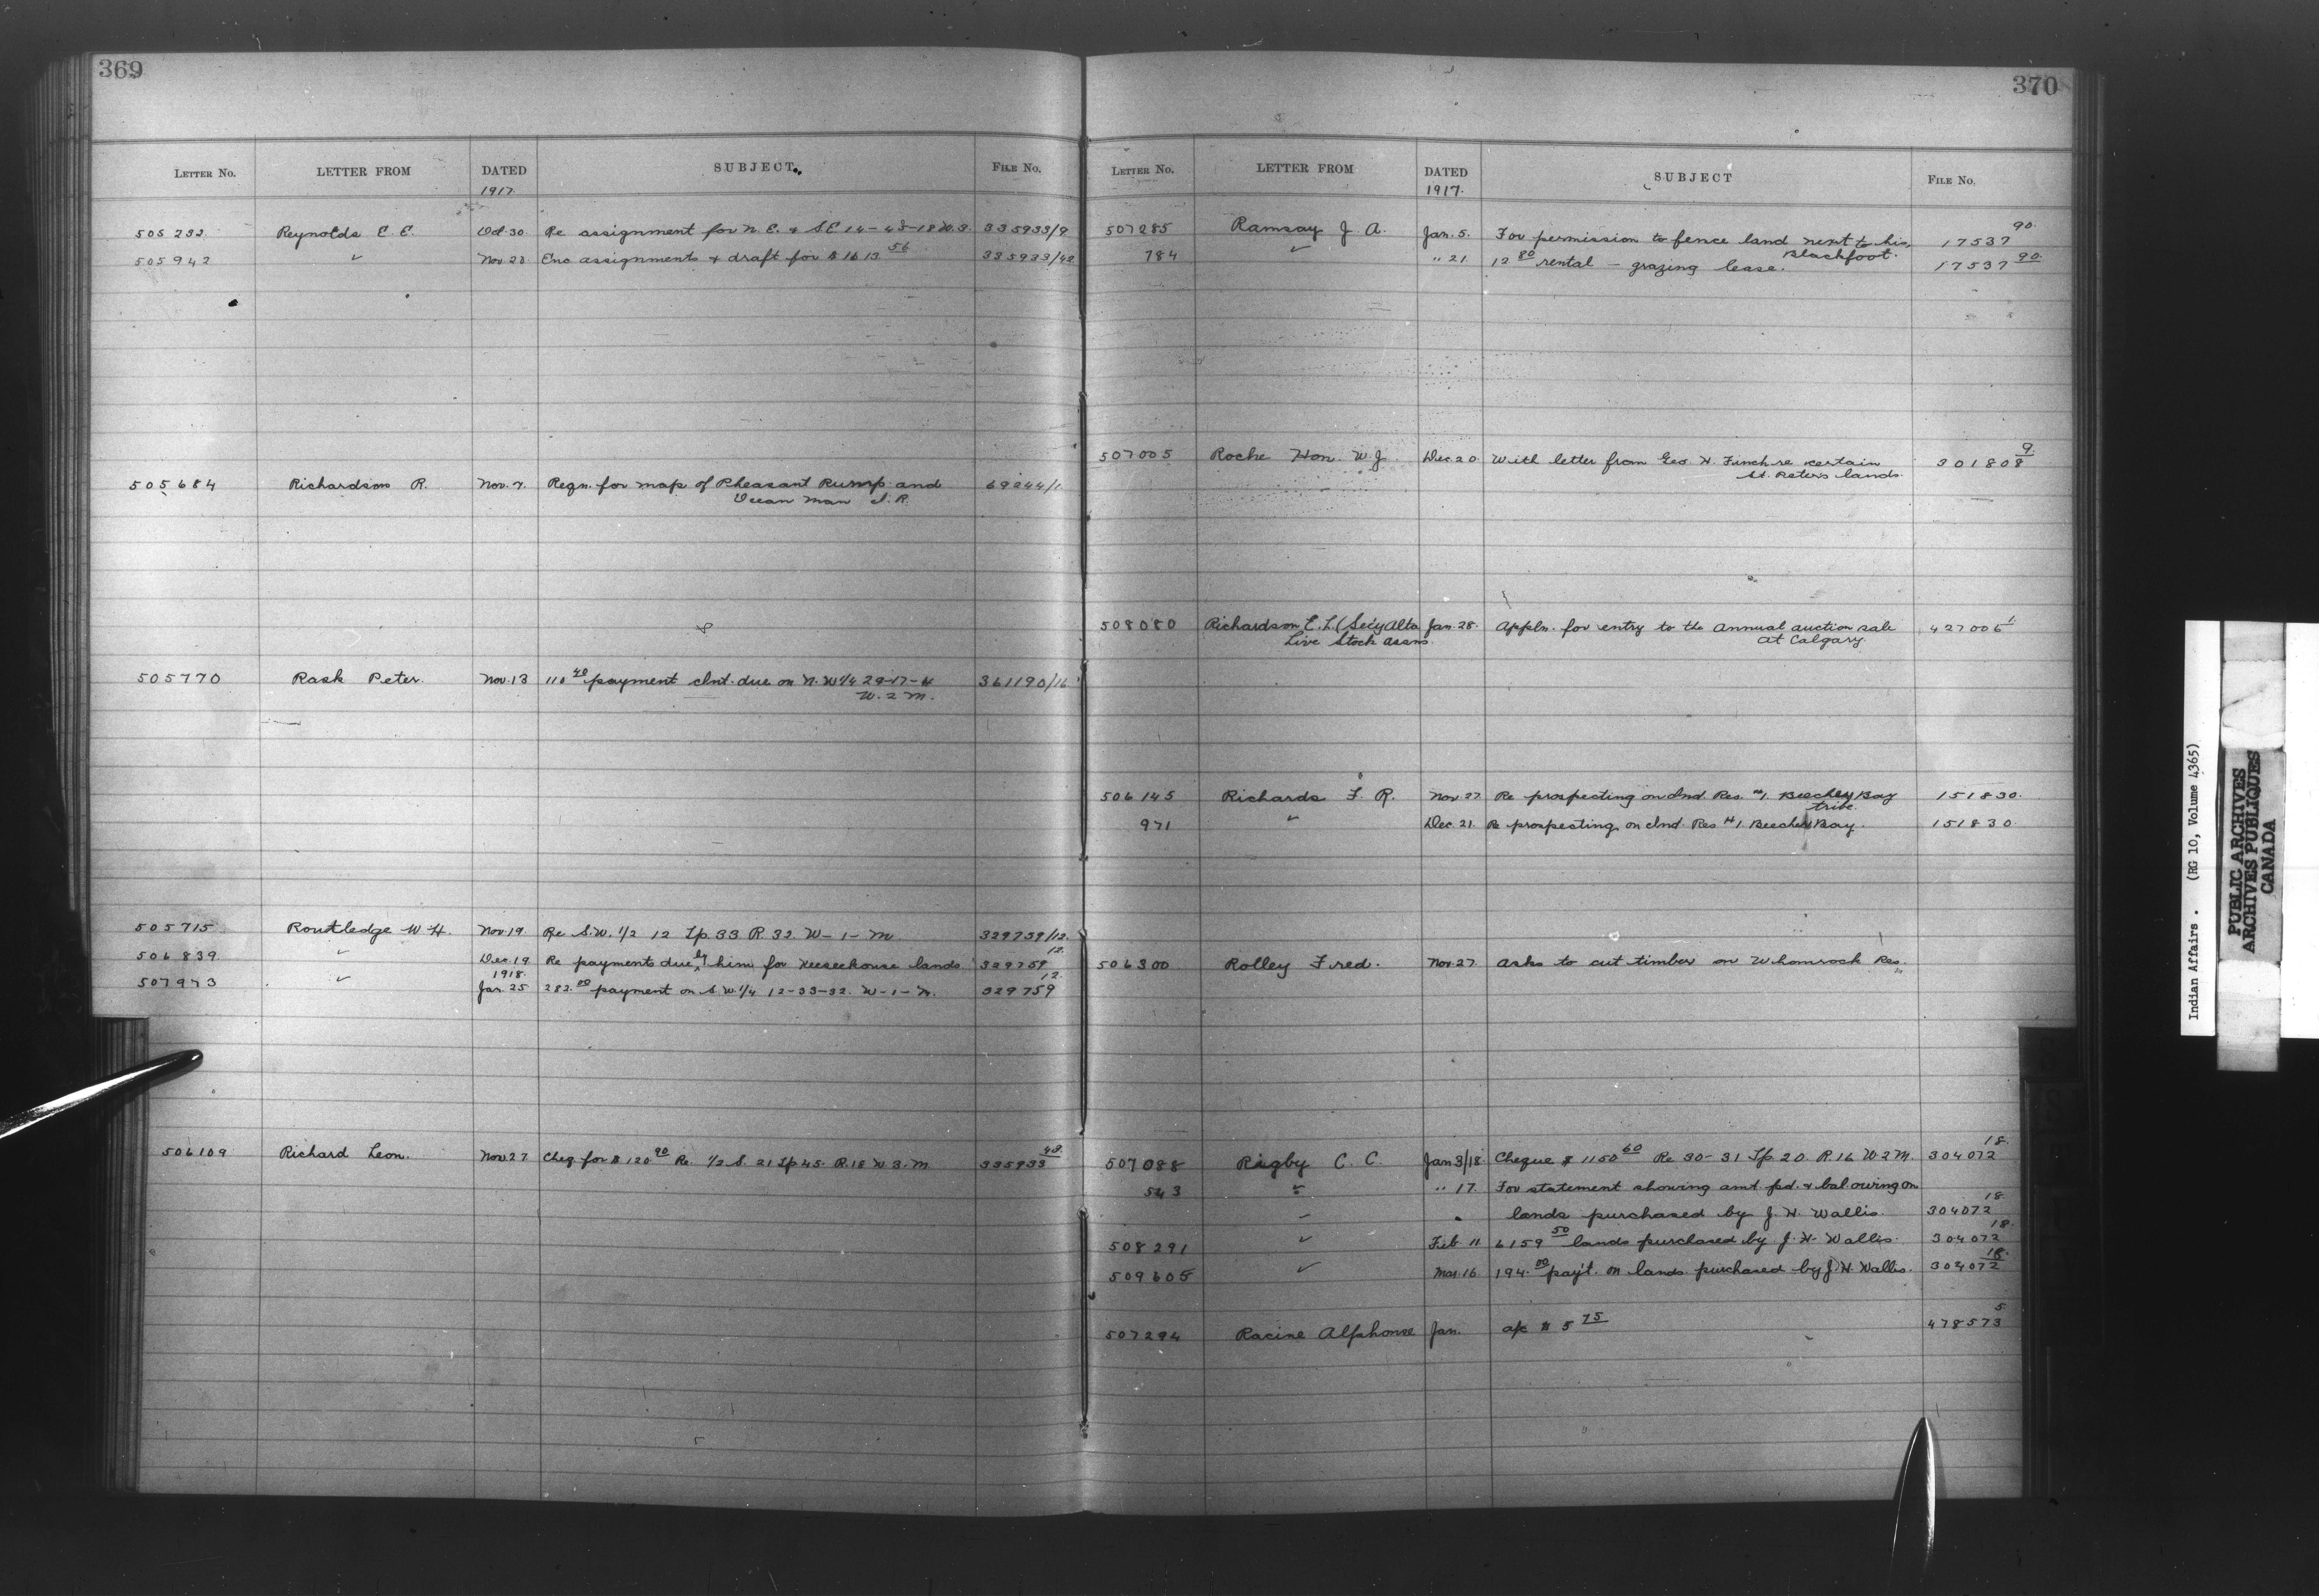 369
LETTER NO. LETTER FROM DATED SUBJECT. FILE NO.
1917.
505232 Reynolds E. E. Oct. 30. Re assignment for N. E. & S.E 14-43-18 W.3. 335933/9
505942 " Nov. 20 Enc assignments & draft for $1613 56 335933/42
505684 Richardson R. Nov. 7. Reqn. for map of Pheasant Rump and 69244/1
Ocean Man I. R.
505770 Rask Peter. Nov. 13 110 40 payment Int. due on N. W 1/4 29-17-4 361190/16
W. 2 M.
505715 Routledge W H. Nov. 19. Re S.W. 1/2 12 Tp. 33 R. 32. W-1-M 329759/12.
506839 " Dec. 19 Re payments due by him for Keeseehouse lands 329759 12.
1918.
507973 " Jan. 25 282.00 payment on S.W. 1/4 12-33-32. W-1-M. 329759 12.
506109 Richard Leon. Nov 27 Cheq. for $120 90 Re. 1/2 S. 21 Tp 45. R.18 W 3. M 335933 43.
370
LETTER NO. LETTER FROM DATED SUBJECT FILE NO.
1917.
507285 Ramsay J A. Jan. 5. For permission to fence land next to his 17537 90.
Blackfoot.
784 " " 21 12 80 rental - grazing lease. 17537 90.
507005 Roche Hon. W. J. Dec 20. With letter from Geo H. Finch re certain 301808 9
St. Peters lands.
508080 Richardson E. L. (Sec'y Alta Jan. 28. Appln. for entry to the Annual auction sale 427006 1.
Live Stock Assns. at Calgary.
506145 Richards F. R. Nov. 27 Re prospecting on Ind. Res. #1. Beechey Bay 151830.
tribe.
971 " Dec. 21. Re prospecting on Ind. Res #1. Beecher Bay. 151830
506300 Rolley Fred. Nov. 27. Asks to cut timber on Whonnock Res.
507088 Rigby C. C. Jan 3/18 Cheque $1150 60 Re 30-31 Tp. 20. R.16 W 2 M. 304072 18.
543 " " 17. For statement showing amt. pd. & bal. owing on
" lands purchased by J. H. Wallis. 304072 18.
508291 " Feb 11 6159 50 lands purchased by J. H. Wallis. 304072 18.
509605 " Mar. 16 194.00 pay't. on lands purchased by J. H. Wallis. 304072 18.
507294 Racine Alphonse Jan. a/c $5 75 478573 5
Indian Affairs. (RG 10, Volume 4365)
PUBLIC ARCHIVES
ARCHIVES PUBLIQUES
CANADA